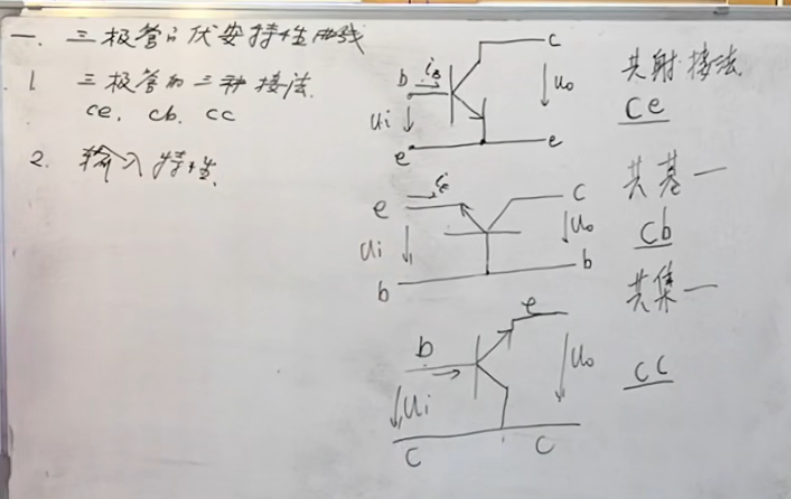 一. 三极管的伏安特性曲线
1 三极管的三种接法.
ce. cb. cc
2. 输入特性.
c
b iB
ui uo
e e
共射接法
ce
e ie c
ui uo
b b
共基一
cb
e
b
ui uo
c c
共集一
cc